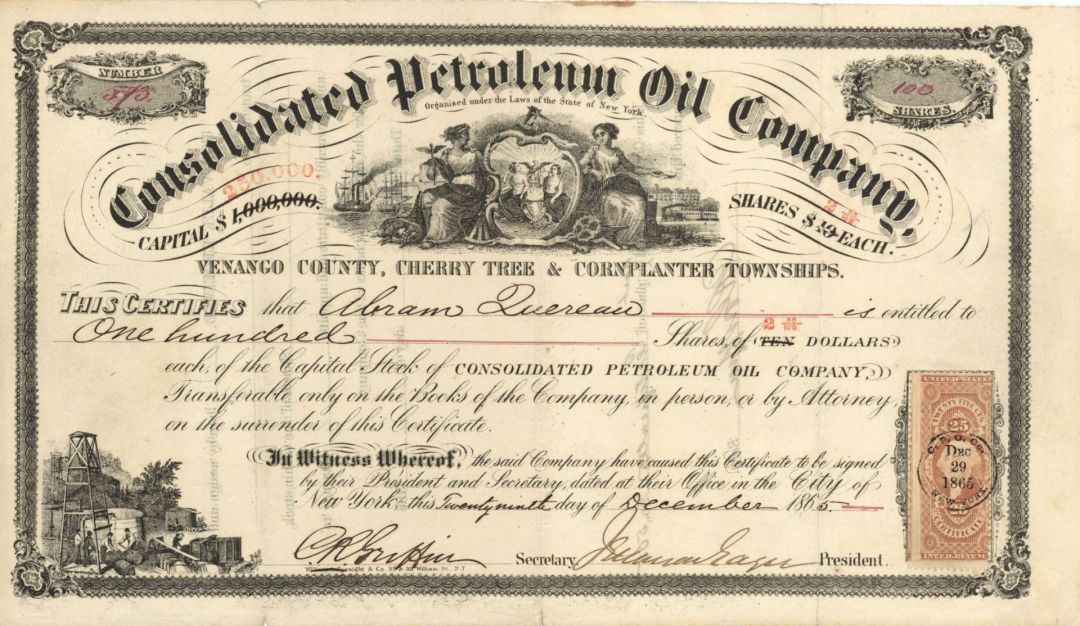 NUMBER
573.
100
SHARES
Consolidated Petroleum Oil Company,
Organized under the Laws of the State of New York.
250.000.
CAPITAL $ 1,000,000.
2 50/100
SHARES $ 10 EACH.
VENANGO COUNTY, CHERRY TREE & CORNPLANTER TOWNSHIPS.
THIS CERTIFIES that Abram Quereau is entitled to
2 50/100
One hundred Shares, of TEN DOLLARS
each, of the Capital Stock of CONSOLIDATED PETROLEUM OIL COMPANY,
Transferable only on the Books of the Company, in person, or by Attorney,
on the surrender of this Certificate.
In Witness Whereof, the said Company have caused this Certificate to be signed
by their President and Secretary, dated at their Office in the City of
New York this Twenty ninth day of December 1865.
UNITED STATES
25
C. P. O. Co.
DEC
29
1865
NEW YORK
CERTIFICATE
INTER. REVENUE
C R Griffin Secretary. President.
& Co. William St., N.Y.